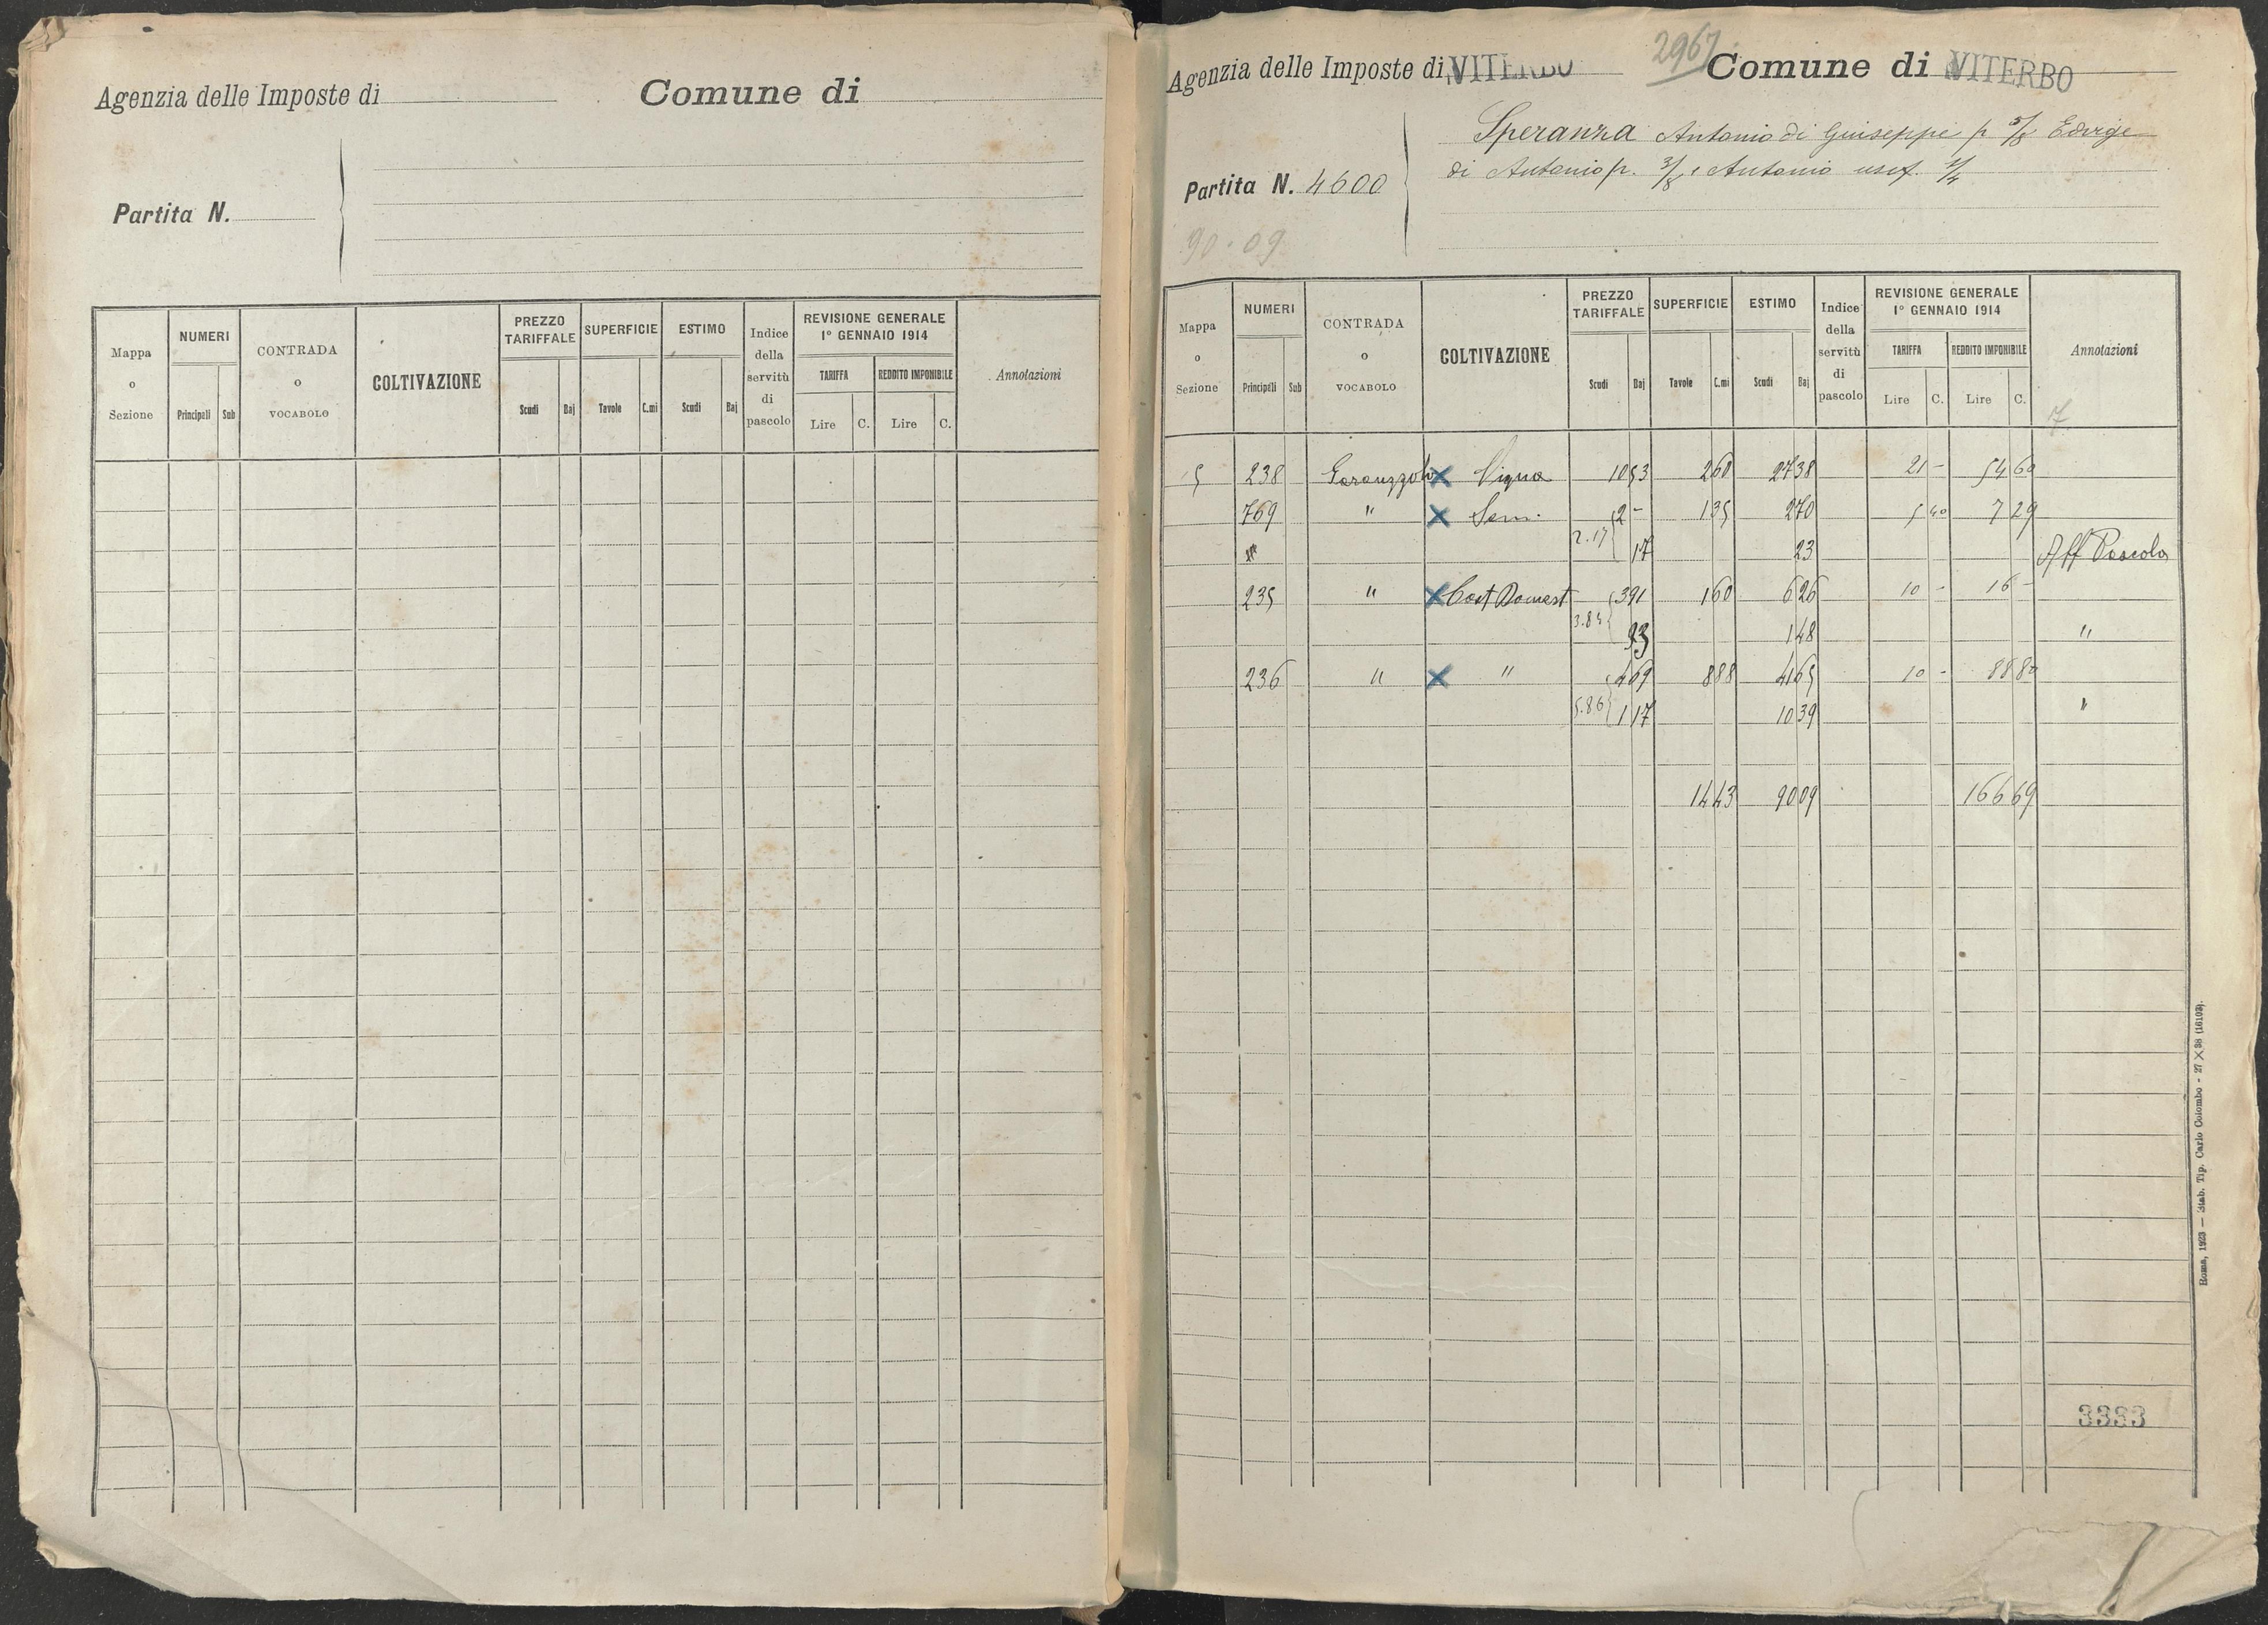 Agenzia delle Imposte di
Comune di
Partita N.
Mappa o Sezione
NUMERI
Principali Sub
CONTRADA o VOCABOLO
COLTIVAZIONE
PREZZO TARIFFALE
Scudi Baj
SUPERFICIE
Tavole C.mi
ESTIMO
Scudi Baj
Indice della servitù di pascolo
REVISIONE GENERALE 1° GENNAIO 1914
TARIFFA
Lire C.
REDDITO IMPONIBILE
Lire C.
Annotazioni
2967
Agenzia delle Imposte di VITERBO Comune di VITERBO
Speranza Antonio di Giuseppe p 5/8 Edvige
di Antonio p. 3/8 e Antonio usuf. 1/4
Partita N. 4600
90-09
Mappa o Sezione
NUMERI
Principali Sub
CONTRADA o VOCABOLO
COLTIVAZIONE
PREZZO TARIFFALE
Scudi Baj
SUPERFICIE
Tavole C.mi
ESTIMO
Scudi Baj
Indice della servitù di pascolo
REVISIONE GENERALE 1° GENNAIO 1914
TARIFFA
Lire C.
REDDITO IMPONIBILE
Lire C.
Annotazioni
7
5 238 X Vigna 10 53 2 60 27 38 21 - 54 60
769 " X Sem. 2 - 1 35 2 70 5 40 7 29
2.17 17 23 Aff Pascolo
235 " X Cast Domest 3 91 1 60 6 26 10 - 16 -
93 1 48 "
236 " X " 4 69 8 88 41 65 10 - 88 80
5.86 1 17 10 39 "
14 43 90 09 166 69
3333
Roma, 1923 — Stab. Tip. Carlo Colombo - 27 X 38 (16103).